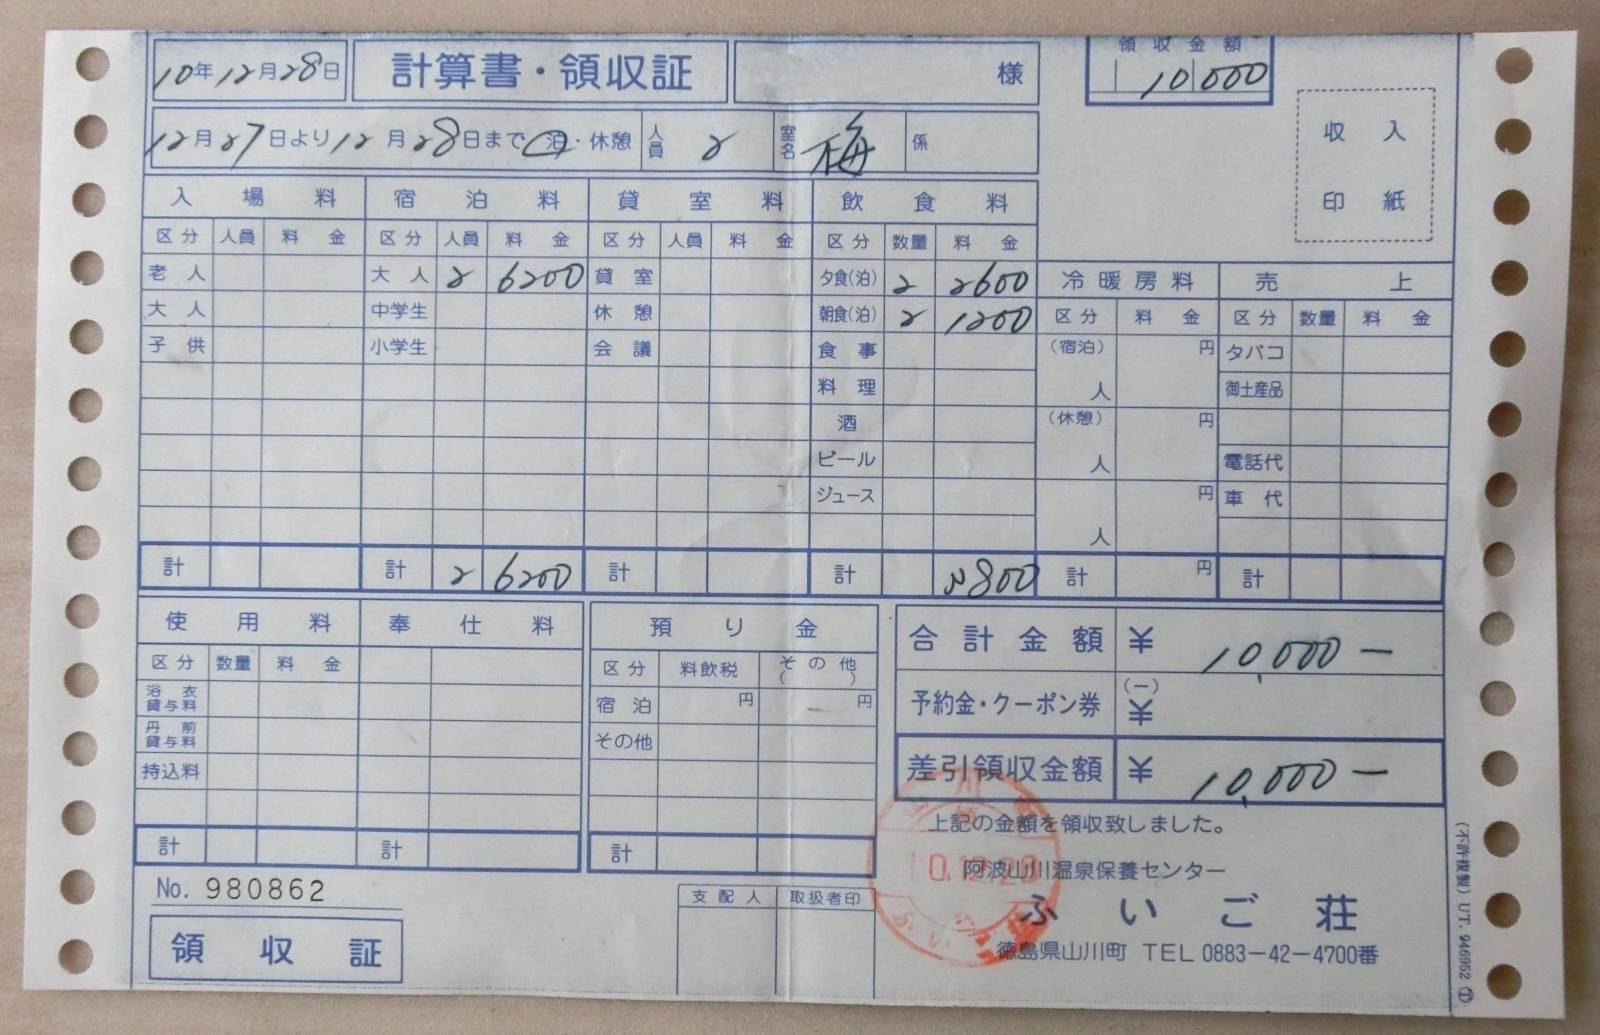 10年12月28日 計算書・領収証 様 領収金額
10000
12月27日より12月28日まで 泊・休憩 人員 2 室名 梅 係
収入
印紙
入場料 宿泊料 貸室料 飲食料
区分 人員 料金 区分 人員 料金 区分 人員 料金 区分 数量 料金
老人 大人 2 6200 貸室 夕食(泊) 2 2600 冷暖房料 売上
大人 中学生 休憩 朝食(泊) 2 1200 区分 料金 区分 数量 料金
子供 小学生 会議 食事 (宿泊) 円 タバコ
料理 人 御土産品
酒 (休憩) 円
ビール 人 電話代
ジュース 円 車代
人
計 計 2 6200 計 計 3800 計 円 計
使用料 奉仕料 預り金 合計金額 ¥ 10,000-
区分 数量 料金 区分 料飲税 その他( )
浴衣貸与料 宿泊 円 円 予約金・クーポン券 (-)¥
丹前貸与料 その他
持込料 差引領収金額 ¥ 10,000-
上記の金額を領収致しました。
計 計 計
阿波山川温泉保養センター
No. 980862 支配人 取扱者印
ふいご荘
領収証
徳島県山川町 TEL 0883-42-4700番
(不許複製) UT. 946952